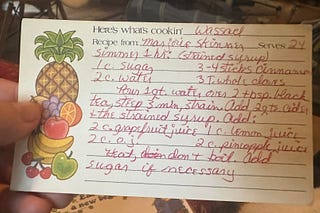 Here's what's cookin' Wassael
Recipe from: Marjorie Skinner Serves 24
Simmer 1 hr. (strained syrup)
1 c. sugar 3-4 sticks cinnamon
2 c. water 3 T. whole cloves
Pour 1 qt. water, over 2 tbsp. black
tea, steep 3 min, strain. Add 2 qts. cider
+ the strained syrup. Add:
2 c. grapefruit juice 1 c. lemon juice
2 c. o.j. 2 c. pineapple juice
Heat, don't boil. Add
sugar if necessary